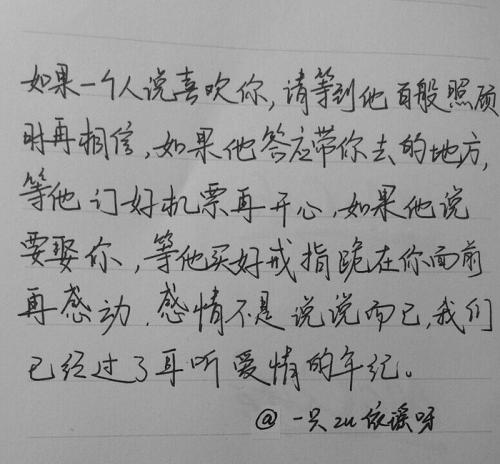 如果一个人说喜欢你,请等到他百般照顾
时再相信,如果他答应带你去的地方,
等他订好机票再开心,如果他说
要娶你,等他买好戒指跪在你面前
再感动,感情不是说说而已,我们
已经过了耳听爱情的年纪。
@一只zu依谣呀